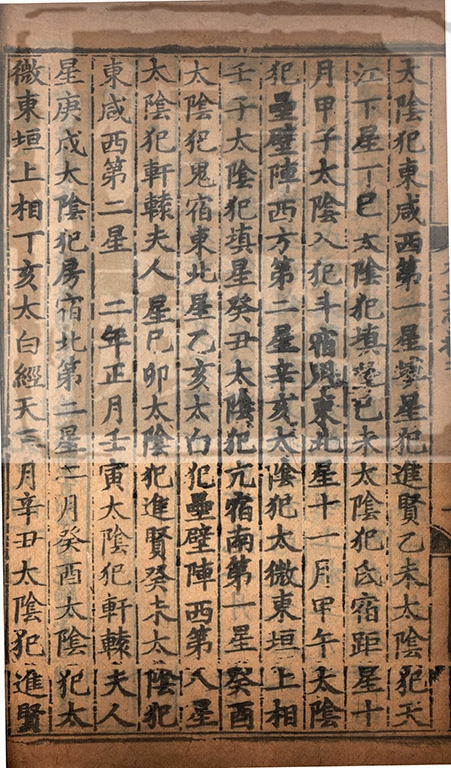 太陰犯東咸西第一星星犯進賢乙未太陰犯天
江下星丁巳太陰犯填星己未太陰犯氐宿距星十
月甲子太陰入犯斗宿魁東北星十一月甲午太陰
犯壘壁陣西方第二星辛亥太陰犯太微東垣上相
壬子太陰犯填星癸丑太陰犯亢宿南第一星癸酉
太陰犯鬼宿東北星乙亥太白犯壘壁陣西第八星
太陰犯軒轅夫人星己卯太陰犯進賢癸未太陰犯
東咸西第二星 二年正月壬寅太陰犯軒轅夫人
星庚戌太陰犯房宿北第二星二月癸酉太陰犯太
微東垣上相丁亥太白經天三月辛丑太陰犯進賢